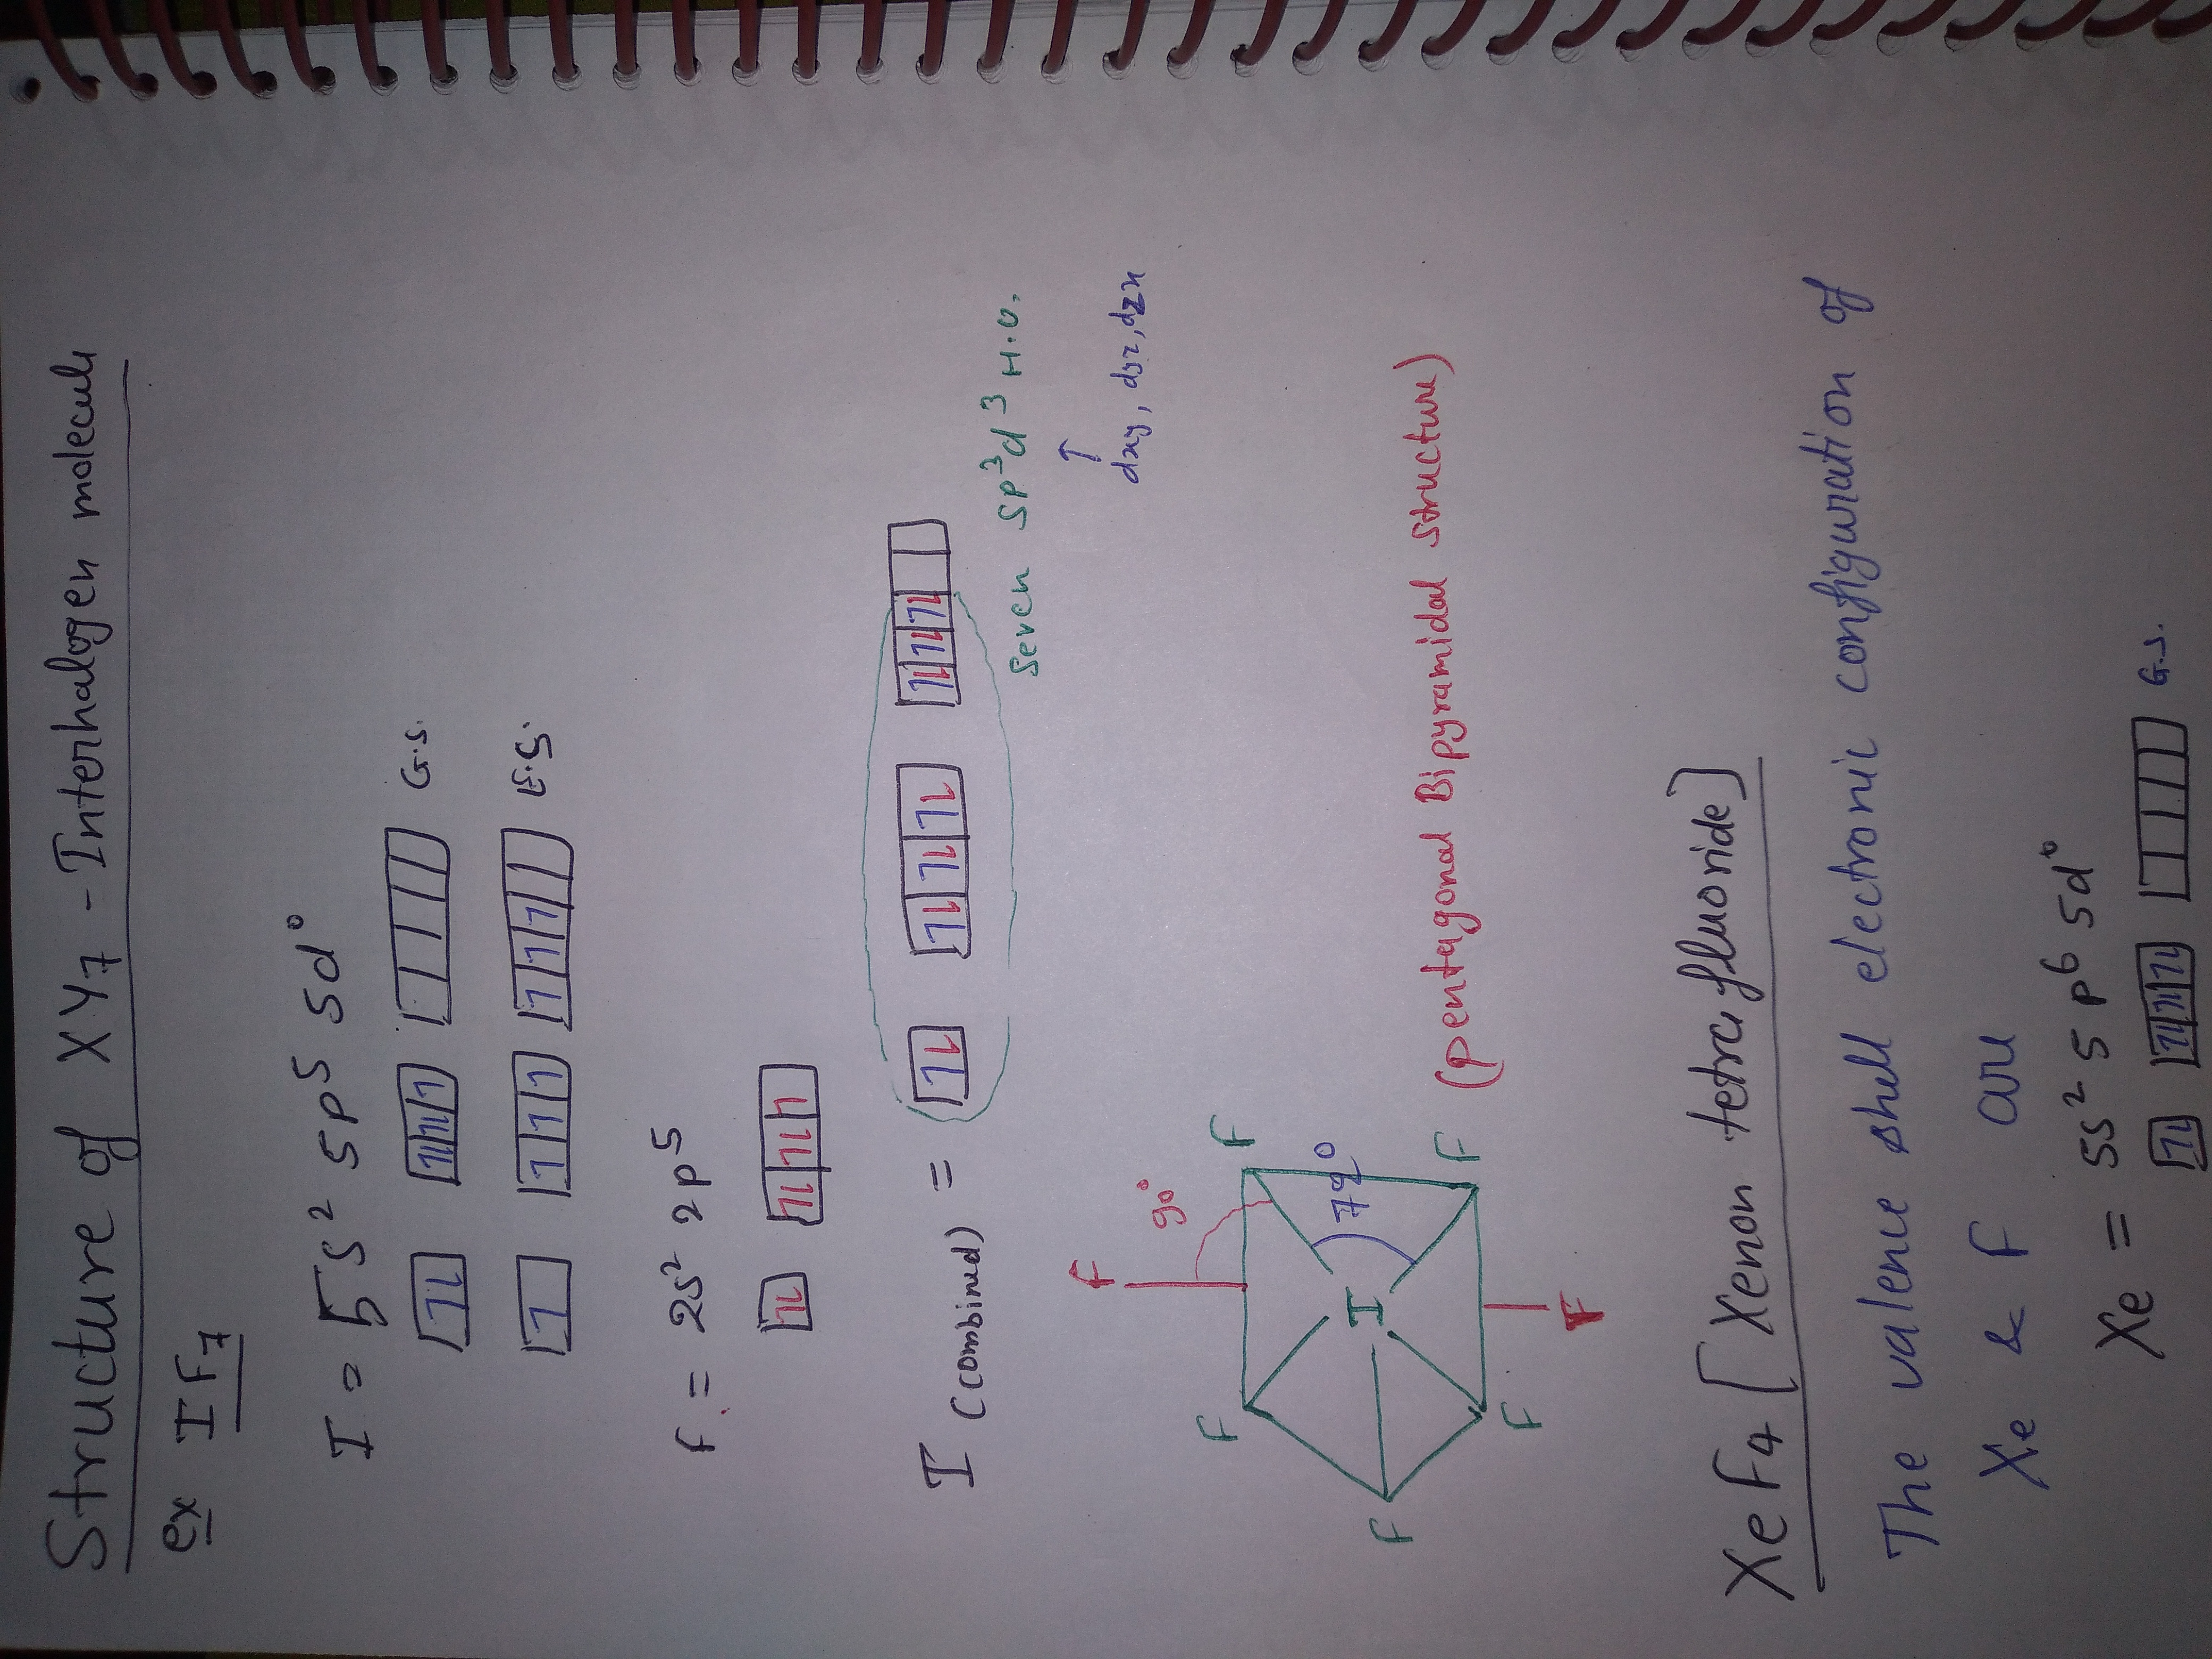 Structure of XY7 - Interhalogen molecule
ex IF7
I = 5s2 5p5 5d0
G.S.
E.S.
F = 2s2 2p5
I (combined) =
Seven sp3d3 H.O.
↑
dxy, dyz, dzx
F
90°
F
F
I
72°
F
F
F
F
(pentagonal Bipyramidal structure)
XeF4 [Xenon tetrafluoride]
The valence shell electronic configuration of
Xe & F are
Xe = 5s2 5p6 5d0
G.S.